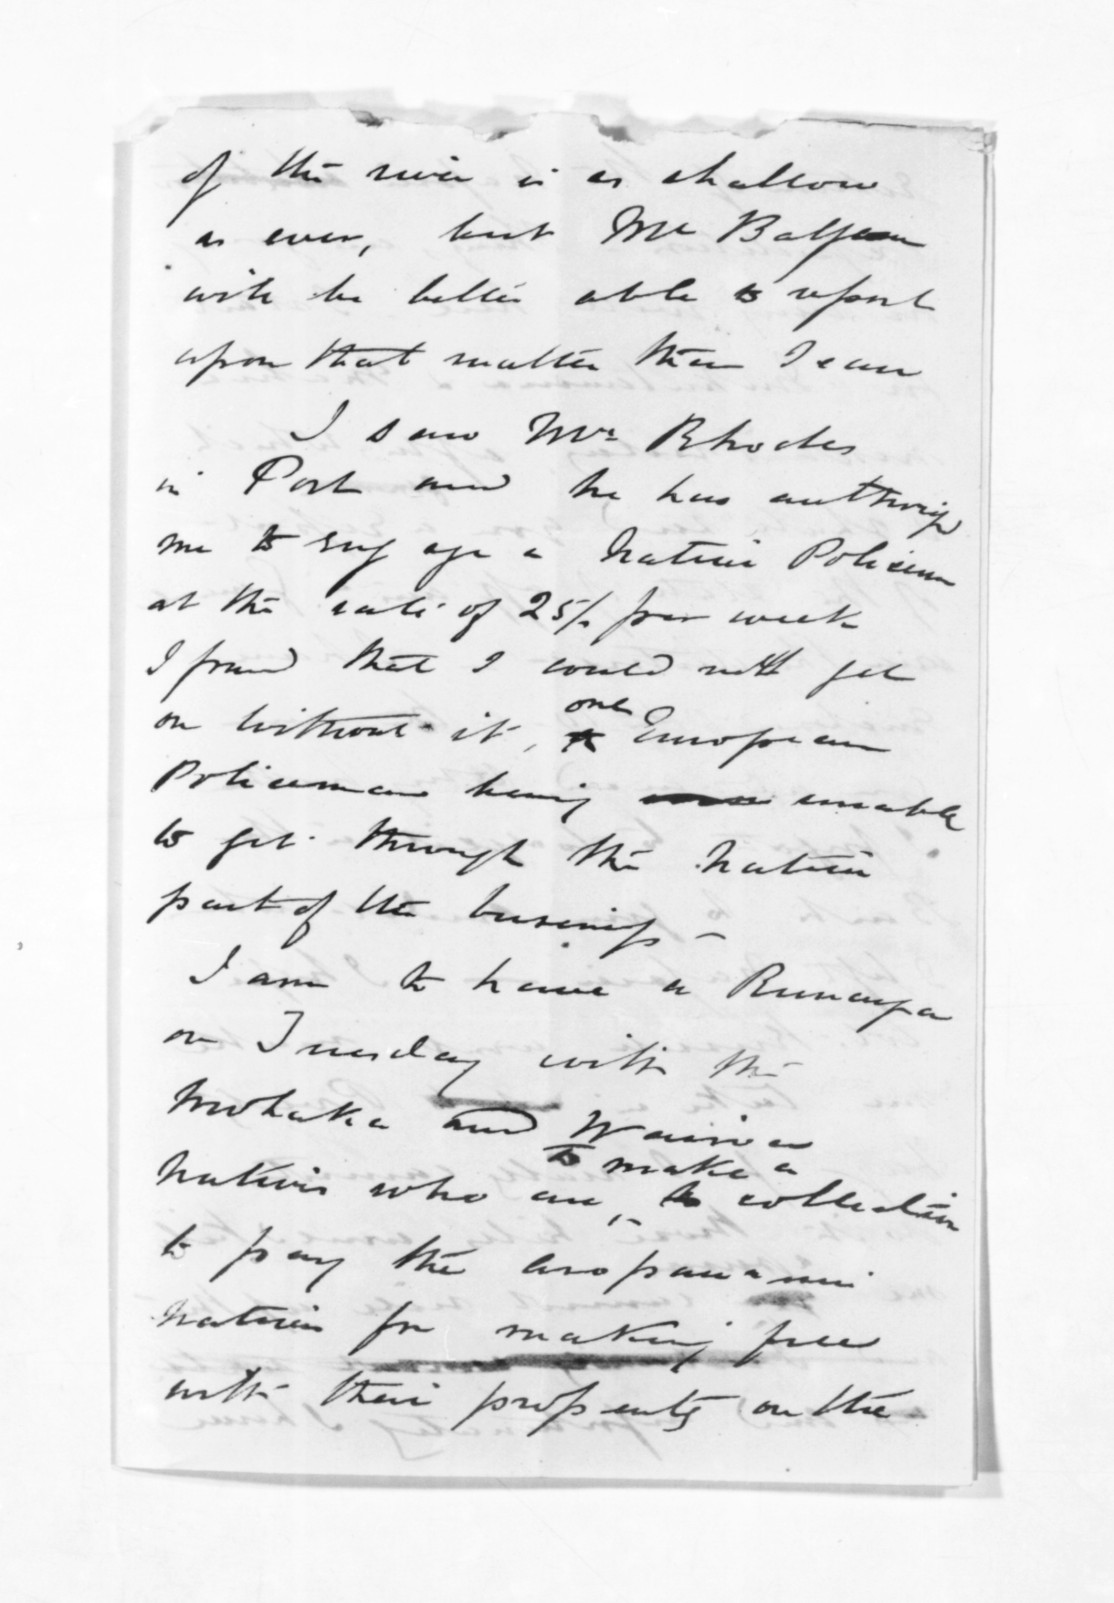 of the river is as shallow
as ever, but Mr Balfour
will be better able to report
upon that matter than I can
I saw Mr Rhodes
in Port and he has authorised
me to engage a Native Policeman
at the rate of 25/- per week
I found that I could not get
on without it, one European
Policeman being unable
to get through the Native
part of the business -
I am to have a Runanga
on Tuesday with the
Mohaka and Wairoa
to make a
Natives who are, collection
to pay the Aropauanui
Natives for making free
with their property on the